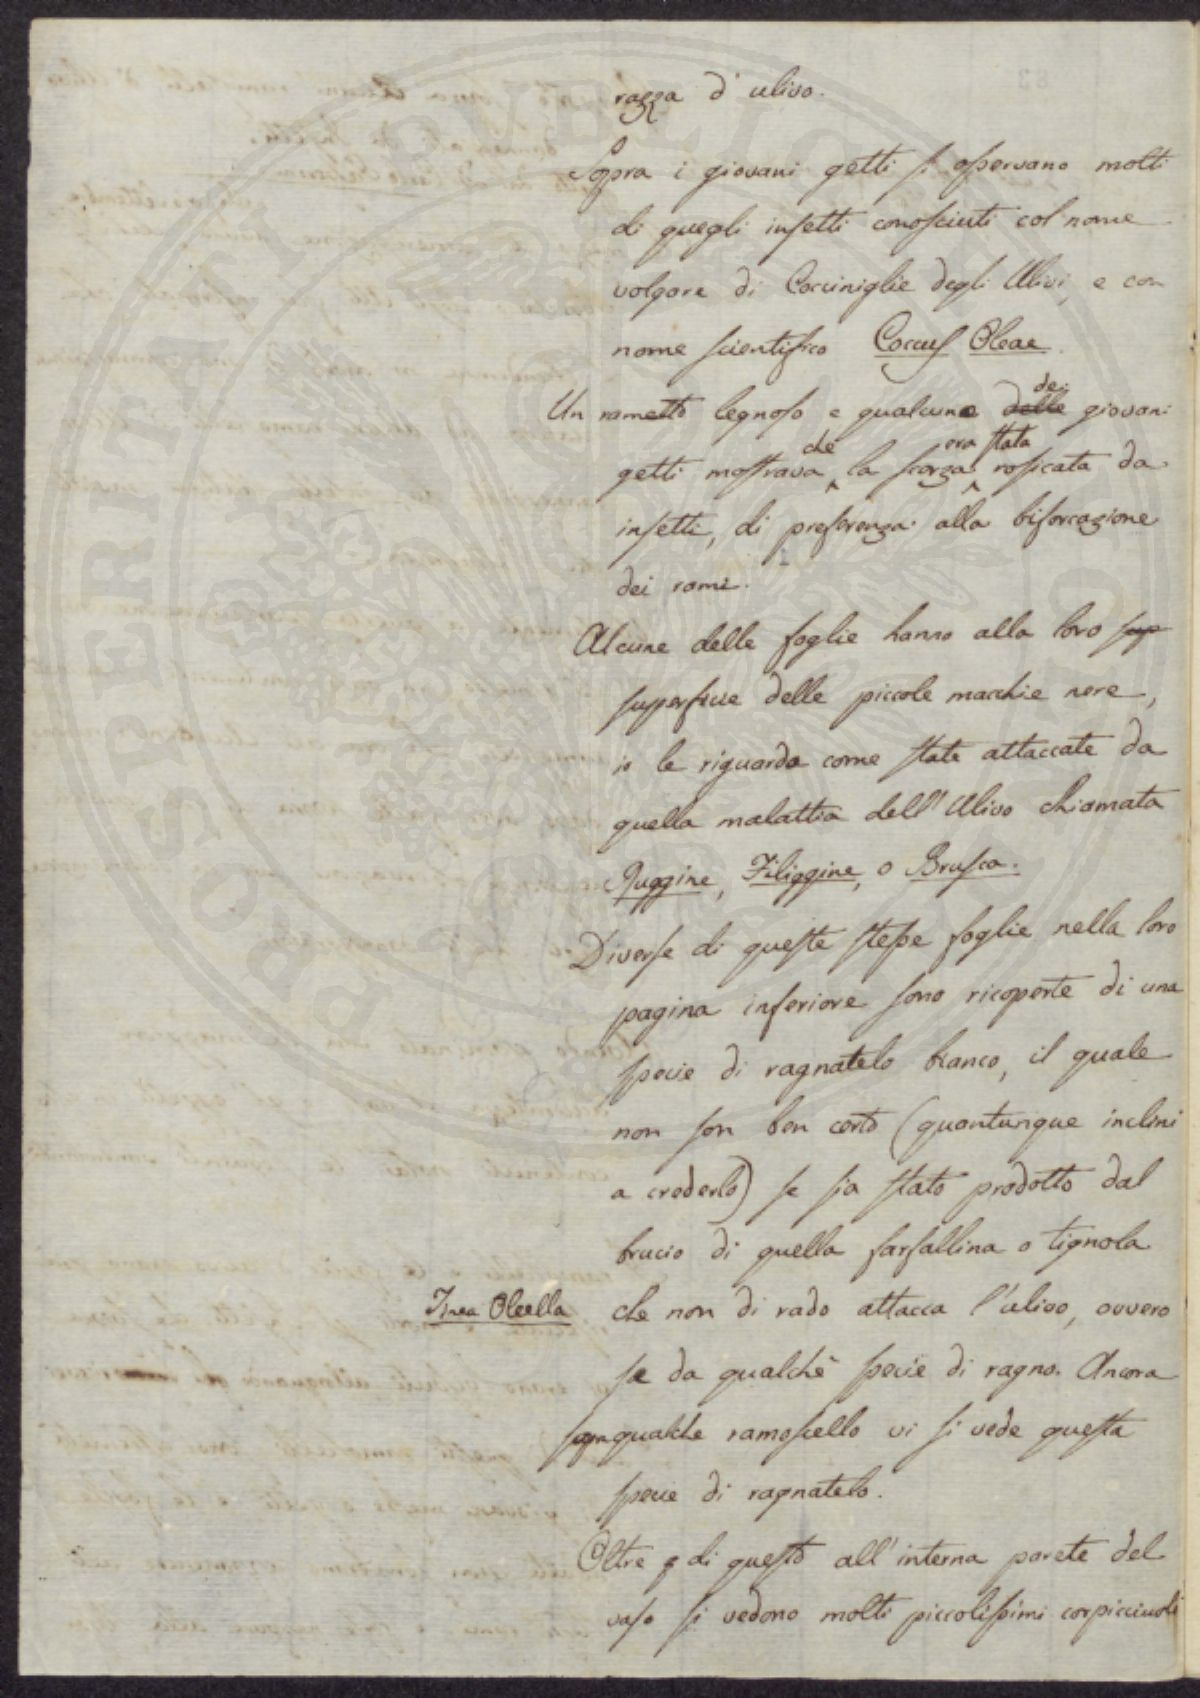 razza d'ulivo.
Sopra i giovani getti si osservano molti
di quegli insetti conosciuti col nome
volgare di Cocciniglie degli Ulivi, e con
nome scientifico Coccus Oleae.
Un rametto legnoso e qualcuno delle dei giovani
getti mostrava che la scorza era stata rosicata da
insetti, di preferenza alla biforcazione
dei rami.
Alcune delle foglie hanno alla loro sup
superficie delle piccole macchie nere,
io le riguardo come state attaccate da
quella malattia dell'Ulivo chiamata
Ruggine, Filiggine, o Brusca.
Diverse di queste stesse foglie nella loro
pagina inferiore sono ricoperte di una
specie di ragnatelo bianco, il quale
non son ben certo (quantunque inclini
a crederlo) se sia stato prodotto dal
brucio di quella farfallina o tignola
Tinea Oleella che non di rado attacca l'ulivo, ovvero
se da qualche specie di ragno. Ancora
sopra qualche ramoscello vi si vede questa
specie di ragnatelo.
Oltre di questo all'interna parete del
vaso si vedono molti piccolissimi corpicciuoli
PROSPERITATI PUBLICAE